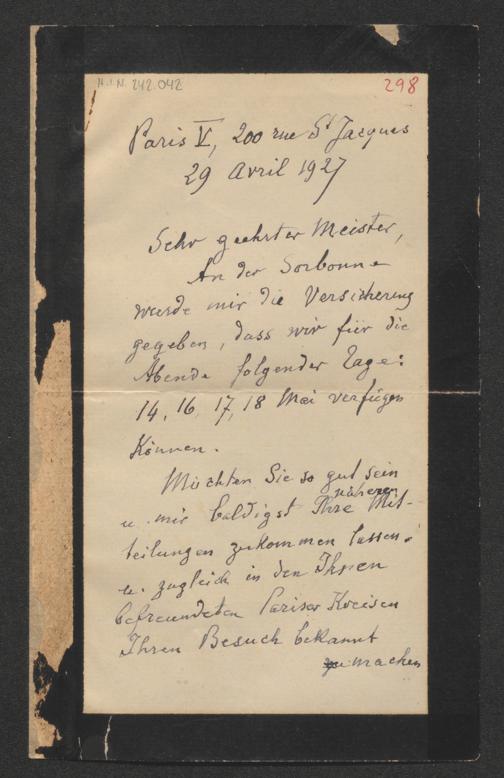 H.I.N. 242.042
298
Paris V, 200 rue St Jacques
29 Avril 1927
Sehr geehrter Meister,
An der Sorbonne
wurde mir die Versicherung
gegeben, dass wir für die
Abende folgender Tage:
14, 16, 17, 18 Mai verfügen
können.
Möchten Sie so gut sein
u. mir baldigst Ihre näheren Mit-
teilungen zukommen lassen
u. zugleich in den Ihnen
befreundeten Pariser Kreisen
Ihren Besuch bekannt
zu machen